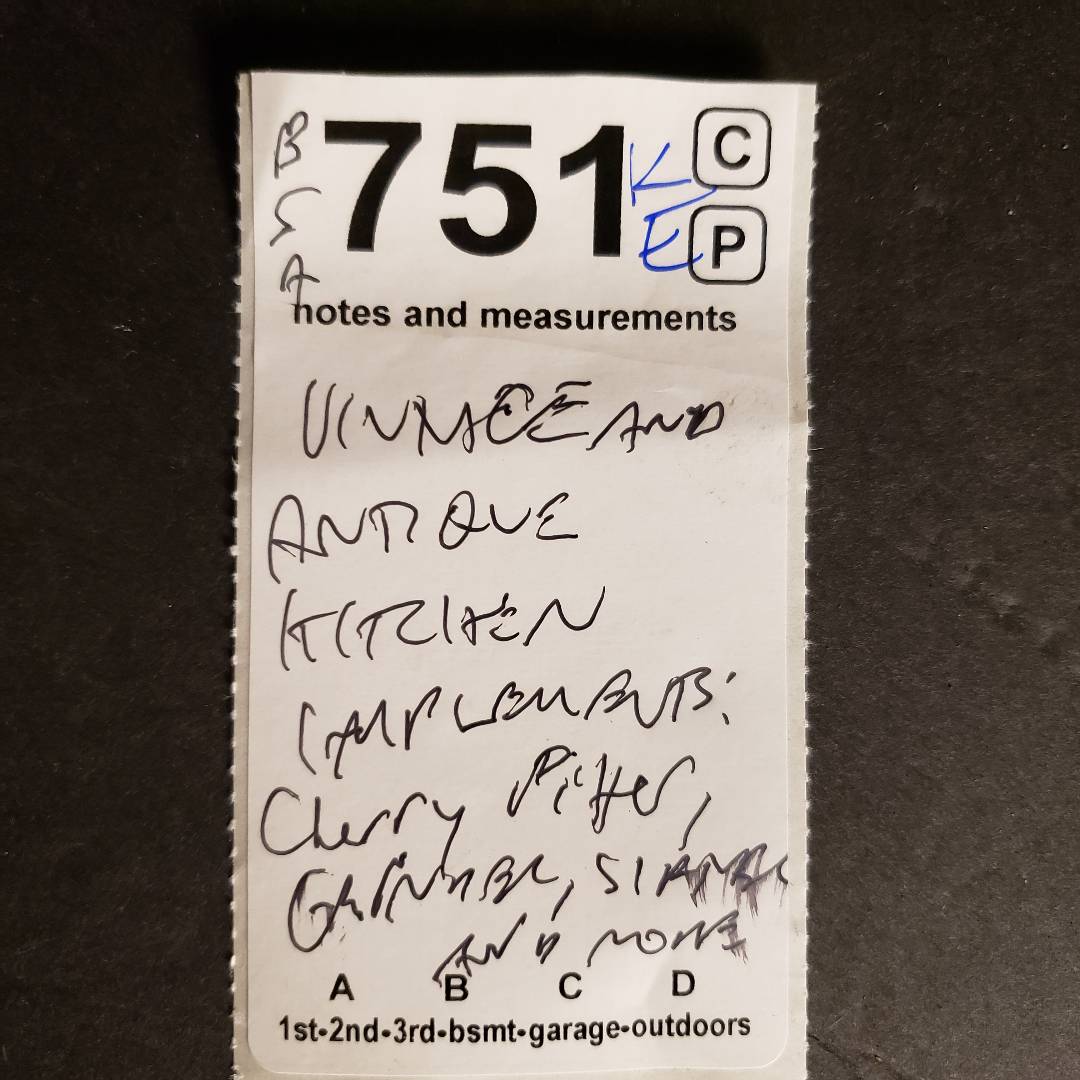 751
C
KE
P
notes and measurements
VINTAGE AND
ANTIQUE
KITCHEN
IMPLEMENTS:
Cherry Pitter,
GRINDER,
AND MORE
A B C D
1st-2nd-3rd-bsmt-garage-outdoors